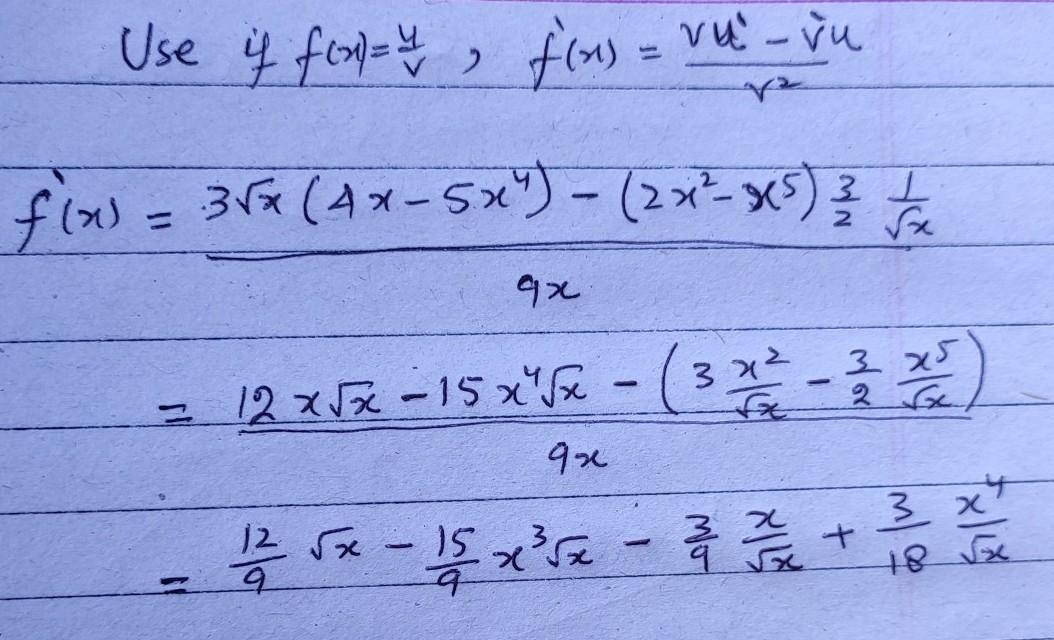 Use if f(x)=u/v , f'(x) = (vu' - v'u)/v²
f'(x) = (3√x (4x - 5x⁴) - (2x² - x⁵) 3/2 1/√x)/9x
= (12x√x - 15x⁴√x - (3 x²/√x - 3/2 x⁵/√x))/9x
= 12/9 √x - 15/9 x³√x - 3/9 x/√x + 3/18 x⁴/√x